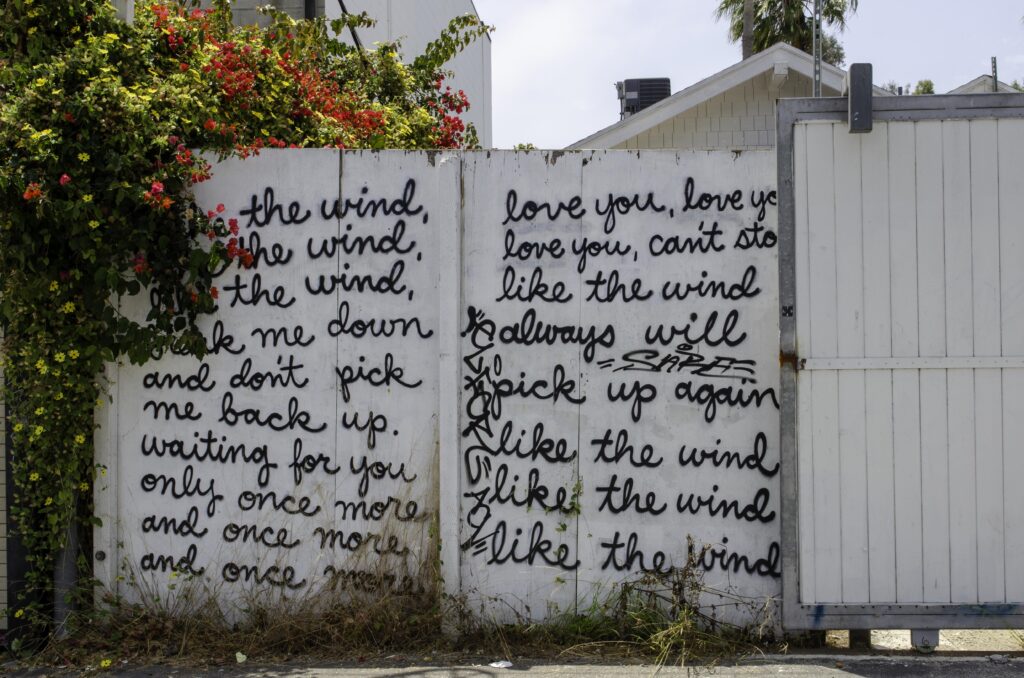 the wind,
the wind,
the wind,
me down
and don't pick
me back up.
waiting for you
only once more
and once more
and once more
love you, love yo
love you, can't sto
like the wind
always will
pick up again
like the wind
like the wind
like the wind